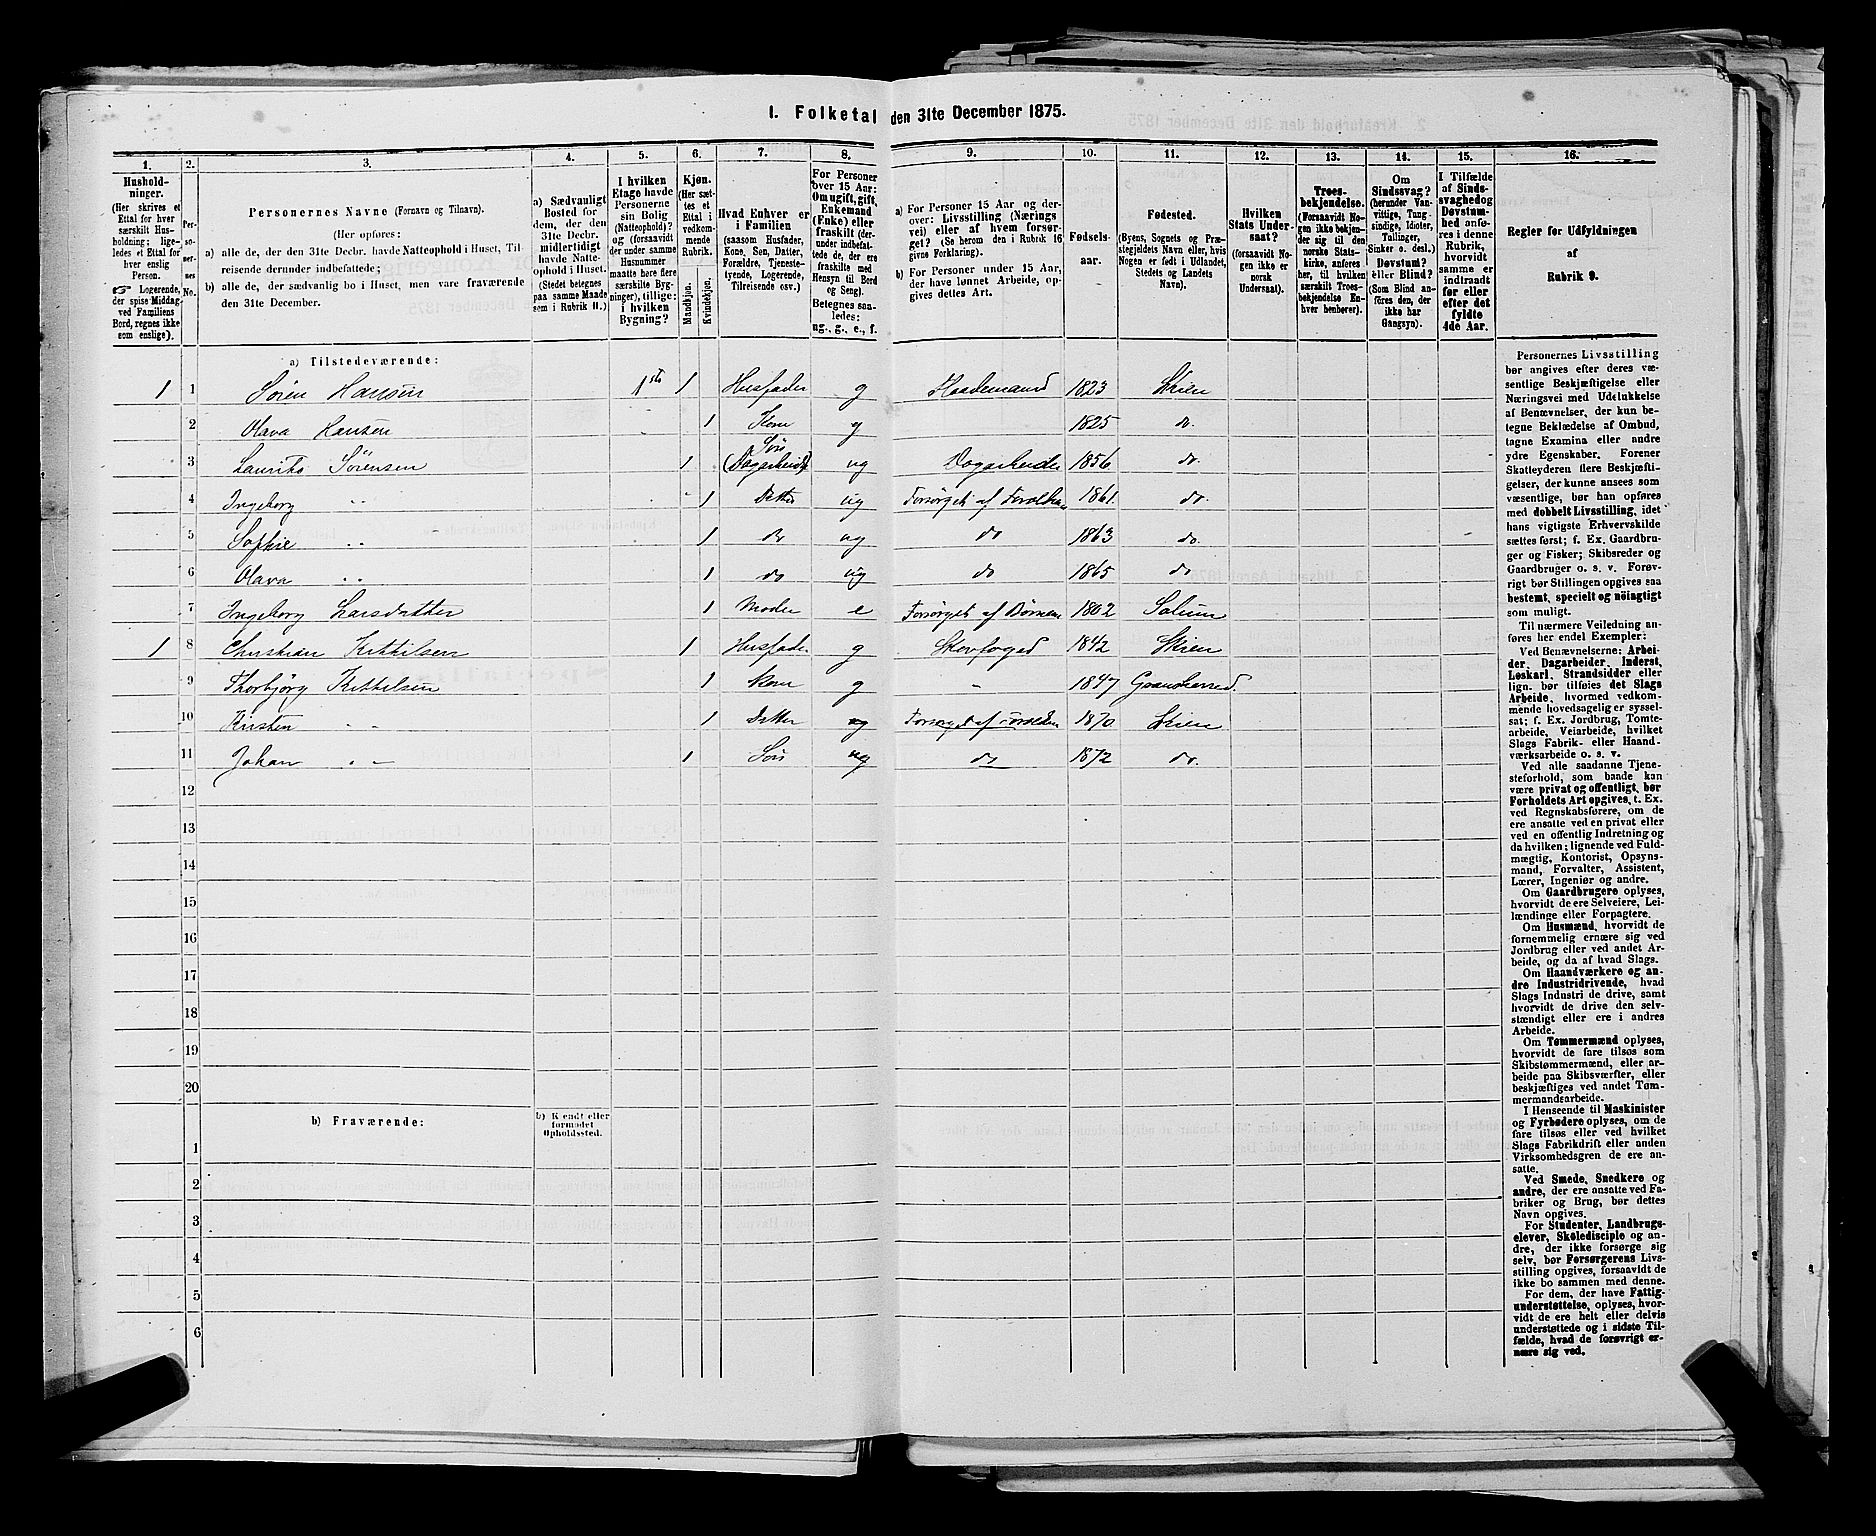 1. Folketal den 31te December 1875.
1.
Hushold-
ninger.
(Her skrives et
Ettal for hver
særskilt Hus-
holdning; lige-
ledes et Ettal for
hver enslig
Person.
☞ Logerende,
der spise Middag
ved Familiens
Bord, regnes ikke
som enslige).
2.
Per-
so-
ner-
nes
No.
3.
Personernes Navne (Fornavn og Tilnavn).
(Her opføres:
a) alle de, der den 31te Decbr. havde Natteophold i Huset, Til-
reisende derunder indbefattede;
b) alle de, der sædvanlig bo i Huset, men vare fraværende
den 31te December.
4.
a) Sædvanligt
Bosted for
dem, der den
31te Decbr.
midlertidigt
havde Natte-
ophold i Huset.
(Stedet betegnes
paa samme Maade
som i Rubrik 11.)
5.
I hvilken
Etage havde
Personerne
sin Bolig
(Natteophold)?
og (forsaavidt
der under samme
Husnummer
maatte høre flere
særskilte Byg-
ninger), tillige:
i hvilken
Bygning?
6.
Kjøn.
(Her sæt-
tes et
Ettal i
vedkom-
mende
Rubrik.
Mandkjøn.
Kvindekjøn.
7.
Hvad Enhver er
i Familien
(saasom Husfader,
Kone, Søn, Datter,
Forældre, Tjeneste-
tyende, Logerende,
Tilreisende osv.)
8.
For Personer
over 15 Aar:
Om ugift, gift,
Enkemand
(Enke) eller
fraskilt (der-
under indbefat-
tede de, der ere
fraskilte med
Hensyn til Bord
og Seng).
Betegnes saa-
ledes:
ug., g., e., f.
9.
a) For Personer 15 Aar og der-
over: Livsstilling (Nærings
vei) eller af hvem forsør-
get? (Se herom den i Rubrik 16
givne Forklaring).
b) For Personer under 15 Aar,
der have lønnet Arbeide, op-
gives dettes Art.
10.
Fødsels-
aar.
11.
Fødested.
(Byens, Sognets og Præ-
stegjeldets Navn eller, hvis
Nogen er født i Udlandet,
Stedets og Landets
Navn).
12.
Hvilken
Stats Under-
saat?
(forsaavidt No-
gen ikke er
norsk
Undersaat).
13.
Troes-
bekjendelse.
(Forsaavidt No-
gen ikke bekjen-
der sig til den
norske Stats-
kirke, anføres
her, til hvilken
særskilt Troes-
bekjendelse En-
hver henhører).
14.
Om
Sindssvag?
(herunder Van-
vittige, Tung-
sindige, Idioter,
Tullinger,
Sinker o. desl.)
Døvstum?
eller Blind?
(Som Blind an-
føres den, der
ikke har
Gangsyn).
15.
I Tilfælde
af Sinds-
svaghed og
Døvstum-
hed anfø-
res i denne
Rubrik,
hvorvidt
samme er
indtraadt
før eller
efter det
fyldte
4de Aar.
16.
Regler for Udfyldningen
af
Rubrik 9.
a) Tilstedeværende:
1 1 Søren Hansen 1ste 1 Husfader g Haademand 1823 Skien
2 Olava Hansen 1 Kone g 1825 do.
3 Laurits Sørensen 1 Søn (Dagarbeider) ug Dagarbeider 1856 do.
4 Ingeborg " 1 Datter ug Forsørget af Forældre 1861. do.
5 Sophie " 1 do ug do 1863 do.
6 Olava " 1 do ug do 1865 do
7 Ingeborg Larsdatter 1 Moder e Forsørget af Børnene 1802 Solum
1 8 Christian Kittilsen 1 Husfader g Skovfoged 1842 Skien
9 Thorbjörg Kittilsen 1 Kone g " 1847 Gransherred.
10 Kirsten " 1 Datter ug Forsørget af Forældre 1870 Skien
11 Johan " 1 Søn ug do 1872 do.
12
13
14
15
16
17
18
19
20
b) Fraværende:
b) Kjendt eller
formodet
Opholdssted.
1
2
3
4
5
6
Personernes Livsstilling
bør angives efter deres væ-
sentlige Beskjæftigelse eller
Næringsvei med Udelukkelse
af Benævnelser, der kun be-
tegne Beklædelse af Ombud,
tagne Examina eller andre
ydre Egenskaber. Forener
Skatteyderen flere Beskjæfti-
gelser, der kunne ansees som
væsentlige, bør han opføres
med dobbelt Livsstilling, idet
hans vigtigste Erhvervskilde
sættes først; f. Ex. Gaardbru-
ger og Fisker; Skibsreder og
Gaardbruger o. s. v. Forøv-
rigt bør Stillingen opgives saa
bestemt, specielt og nöiagtigt
som muligt.
Til nærmere Veiledning an-
føres her endel Exempler:
Ved Benævnelserne: Arbei-
der, Dagarbeider, Inderst,
Løskarl, Strandsidder eller
lign. bør tilføies det Slags
Arbeide, hvormed vedkom-
mende hovedsagelig er syssel-
sat; f. Ex. Jordbrug, Tomte-
arbeide, Veiarbeide, hvilket
Slags Fabrik- eller Haand-
værksarbeide o. s. v.
Ved alle saadanne Tjene-
steforhold, som baade kan
være privat og offentligt, bør
Forholdets Art opgives, t. Ex.
ved Regnskabsførere, om de
ere ansatte ved en privat eller
ved en offentlig Indretning og
da hvilken; lignende ved Fuld-
mægtig, Kontorist, Opsyns-
mand, Forvalter, Assistent,
Lærer, Ingeniør og andre.
Om Gaardbrugere oplyses,
hvorvidt de ere Selveiere, Lei-
lændinge eller Forpagtere.
Om Husmænd, hvorvidt de
fornemmelig ernære sig ved
Jordbrug eller ved andet Ar-
beide, og da af hvad Slags.
Om Haandværkere og an-
dre Industridrivende, hvad
Slags Industri de drive, samt
hvorvidt de drive den selv-
stændigt eller ere i andres
Arbeide.
Om Tømmermænd oplyses,
hvorvidt de fare tilsøs som
Skibstømmermænd, eller ar-
beide paa Skibsværfter, eller
beskjæftiges ved andet Tøm-
mermandsarbeide.
I Henseende til Maskinister
og Fyrbødere oplyses, om de
fare tilsøs eller ved hvilket
Slags Fabrikdrift eller anden
Virksomhedsgren de ere an-
satte.
Ved Smede, Snedkere og
andre, der ere ansatte ved Fa-
briker og Brug, bør dettes
Navn opgives.
For Studenter, Landbrugs-
elever, Skoledisciple og an-
dre, der ikke forsørge sig
selv, bør Forsørgerens Livs-
stilling opgives, forsaavidt de
ikke bo sammen med denne.
For dem, der have Fattig-
understøttelse, oplyses, hvor-
vidt de ere helt eller delvis
understøttede og i sidste Til-
fælde, hvad de forøvrigt er-
nære sig ved.